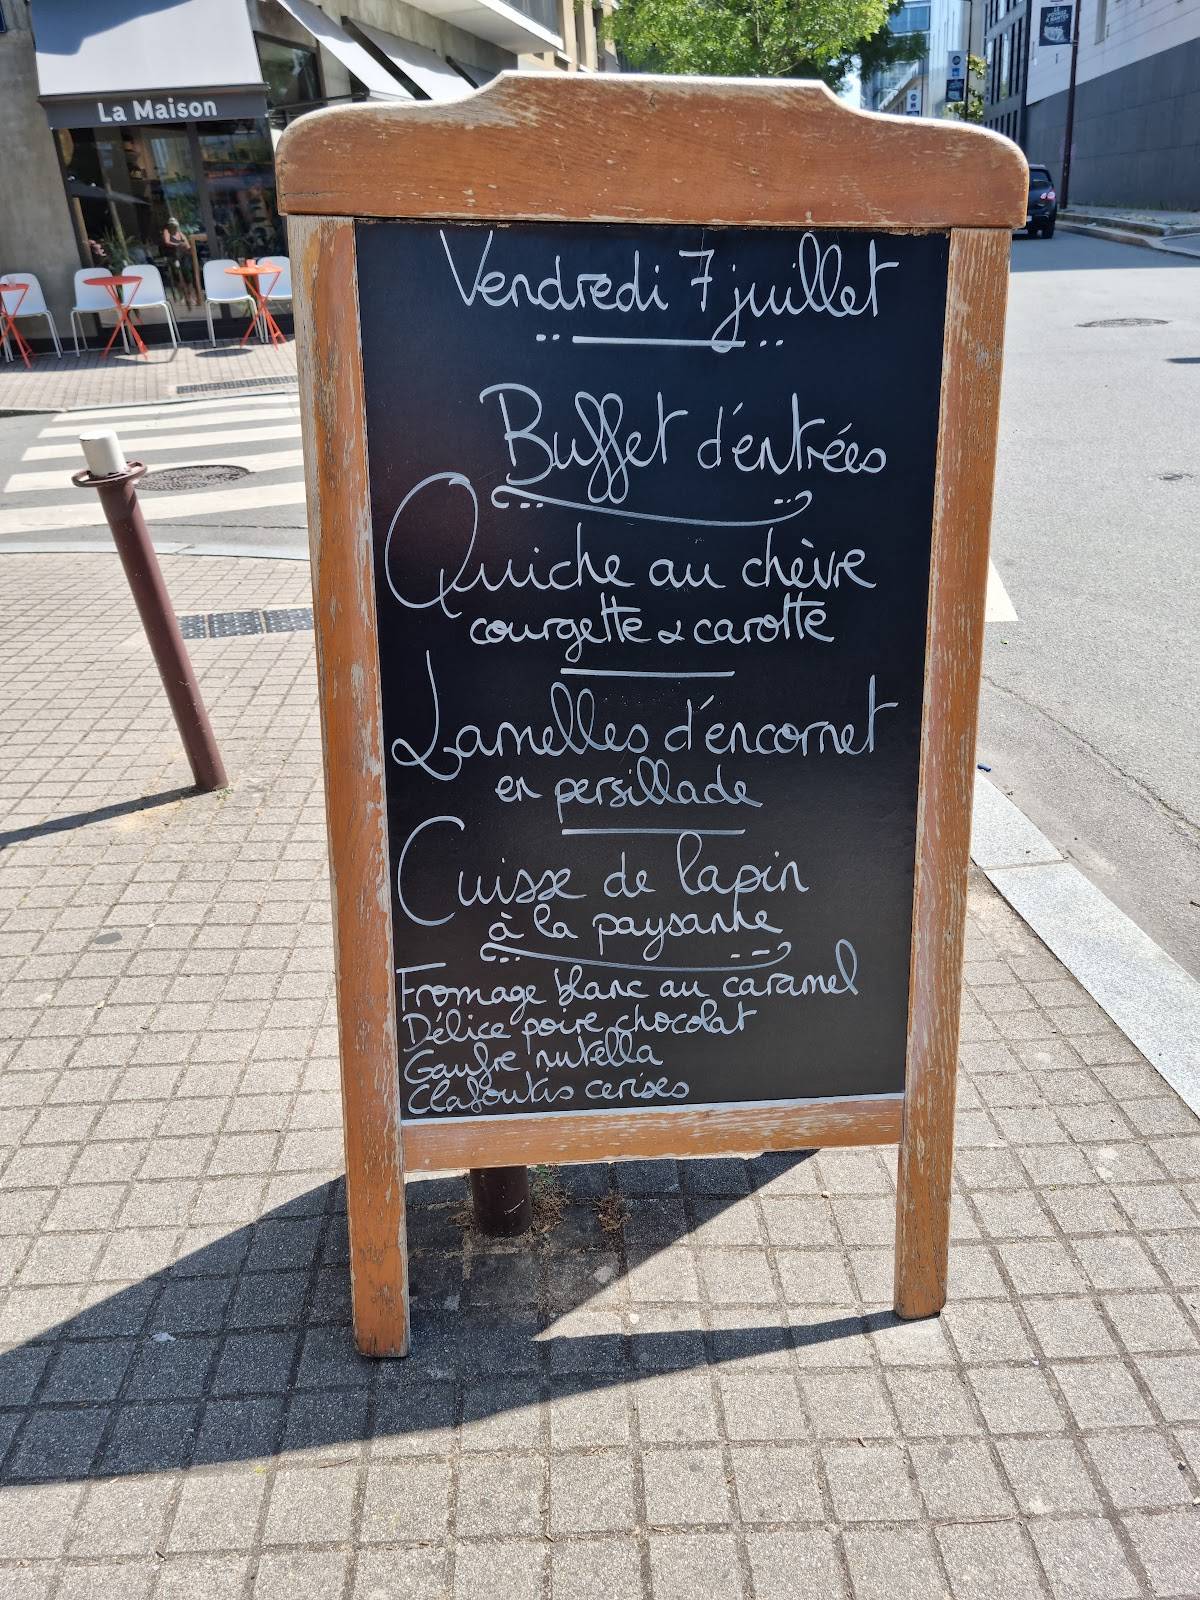 La Maison
Vendredi 7 juillet
Buffet d'entrées
Quiche au chèvre
courgette & carotte
Lamelles d'encornet
en persillade
Cuisse de lapin
à la paysanne
Fromage blanc au caramel
Délice poire chocolat
Gaufre nutella
Clafoutis cerises